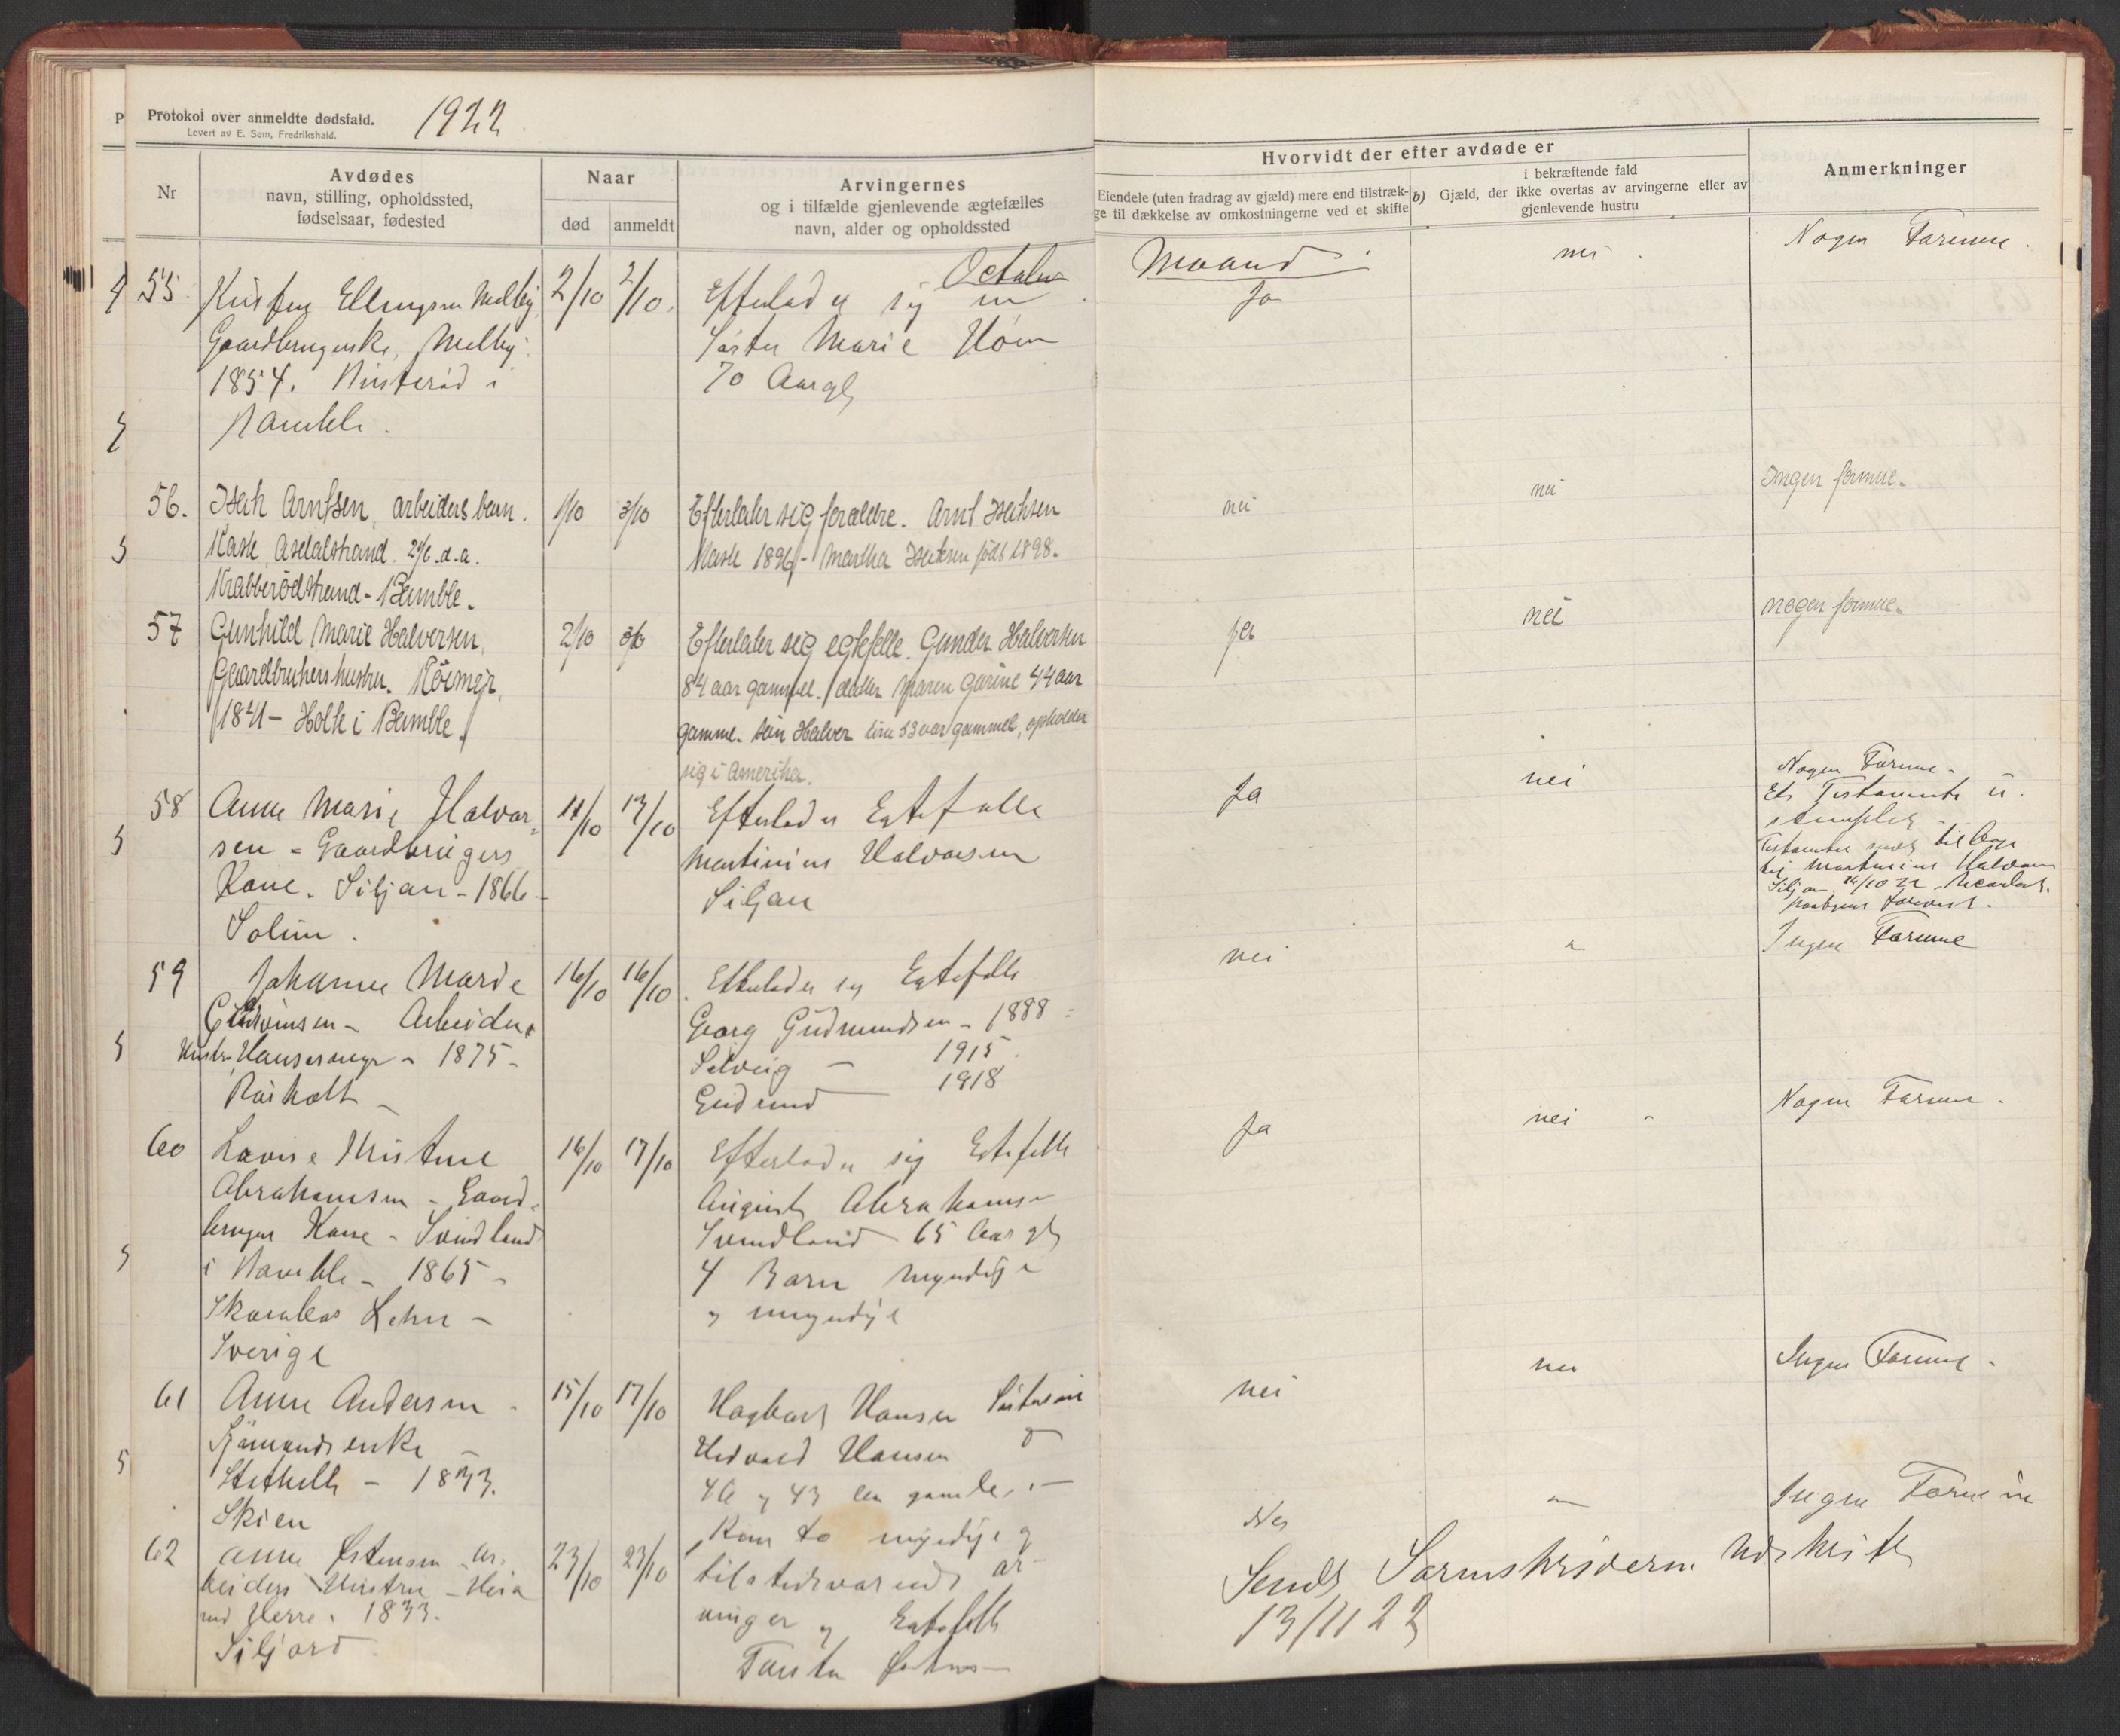 Protokol over anmeldte dødsfald.
Levert av E. Sem, Fredrikshald.
1922
Nr
Avdødes
navn, stilling, opholdssted,
fødselsaar, fødested
Naar
død
anmeldt
Arvingernes
og i tilfælde gjenlevende ægtefælles
navn, alder og opholdssted
Hvorvidt der efter avdøde er
Eiendele (uten fradrag av gjæld) mere end tilstræk-
ge til dækkelse av omkostningerne ved et skifte
b)
i bekræftende fald
Gjæld, der ikke overtas av arvingerne eller av
gjenlevende hustru
Anmerkninger
October
Maaned
55
Ellingsen Melby
Gaardbrugerske, Melby
1854. i
Bamble.
2/10
2/10
Efterlader sig en
Søster Marie
70 Aar gl
Ja
nei
Nogen Formue
56.
Isak Arntsen, arbeiders barn.
Åsdalstrand. d.a.
Krabberødstrand - Bamble.
1/10
3/10
Efterlater sig foraldre. Arnt Isaksen
1896 - Martha Isaksen født 1898.
nei
nei
Ingen formue.
57
Gunhild Marie Halvorsen,
Gaardbrukers hustru.
1841 - Holte i Bamble.
2/10
3/10
Efterlater sig egtefelle. Gunder Halvorsen
84 aar gammel. datter Maren Gurine 44 aar
gamme. søn Halvor 33 aar gammel, opholder
sig i Amerika.
ja
nei
nogen formue.
58
Anne Marie Halvor=
sen - Gaardbrugers
Kone. Siljan - 1866 -
Solum.
11/10
13/10
Efterlader Egtefelle
Martinius Halvorsen
Siljan
Ja
nei
Nogen Formue -
Et Testamente u.
stemplet
Testamentet sendt til
Martinius Halvorsen
Siljan 24/10 22
59
Johanne Marie
- Arbeider
Hustru, - 1875 -
16/10
16/10
Efterlader sig Egtefelle
Georg Gudmundsen - 1888
Solveig - 1915
Gudrund 1918
nei
"
Ingen Formue
60
Lovise Kristine
Abrahamsen - Gaard=
bruger Kone - Svindland
i Bamble - 1865 -
Skaraborg Lehn -
Sverige
16/10
17/10
Efterlader sig Egtefelle
August Abrahamsen
Svindland 65 Aar gl
4 Barn myndige
og umyndige
Ja
nei
Nogen Formue -
61
Anne Andersen -
Sjømands enke -
Stathelle - 1833.
Skien
15/10
17/10
Hagbart Hansen Søstersøn
Edvard Hansen
46 og 43 Aar gamle, -
nei
nei
Ingen Formue -
62
Anne Østensen Ar=
beiders Hustru -
ved Herre - 1833.
Siljord
23/10
23/10
Kun to myndige og
tilstedeværende ar-
vinger og Egtefelle
Nei
"
Ingen Formue
Sendt Sorenskriveren Udskrift
13/11 22